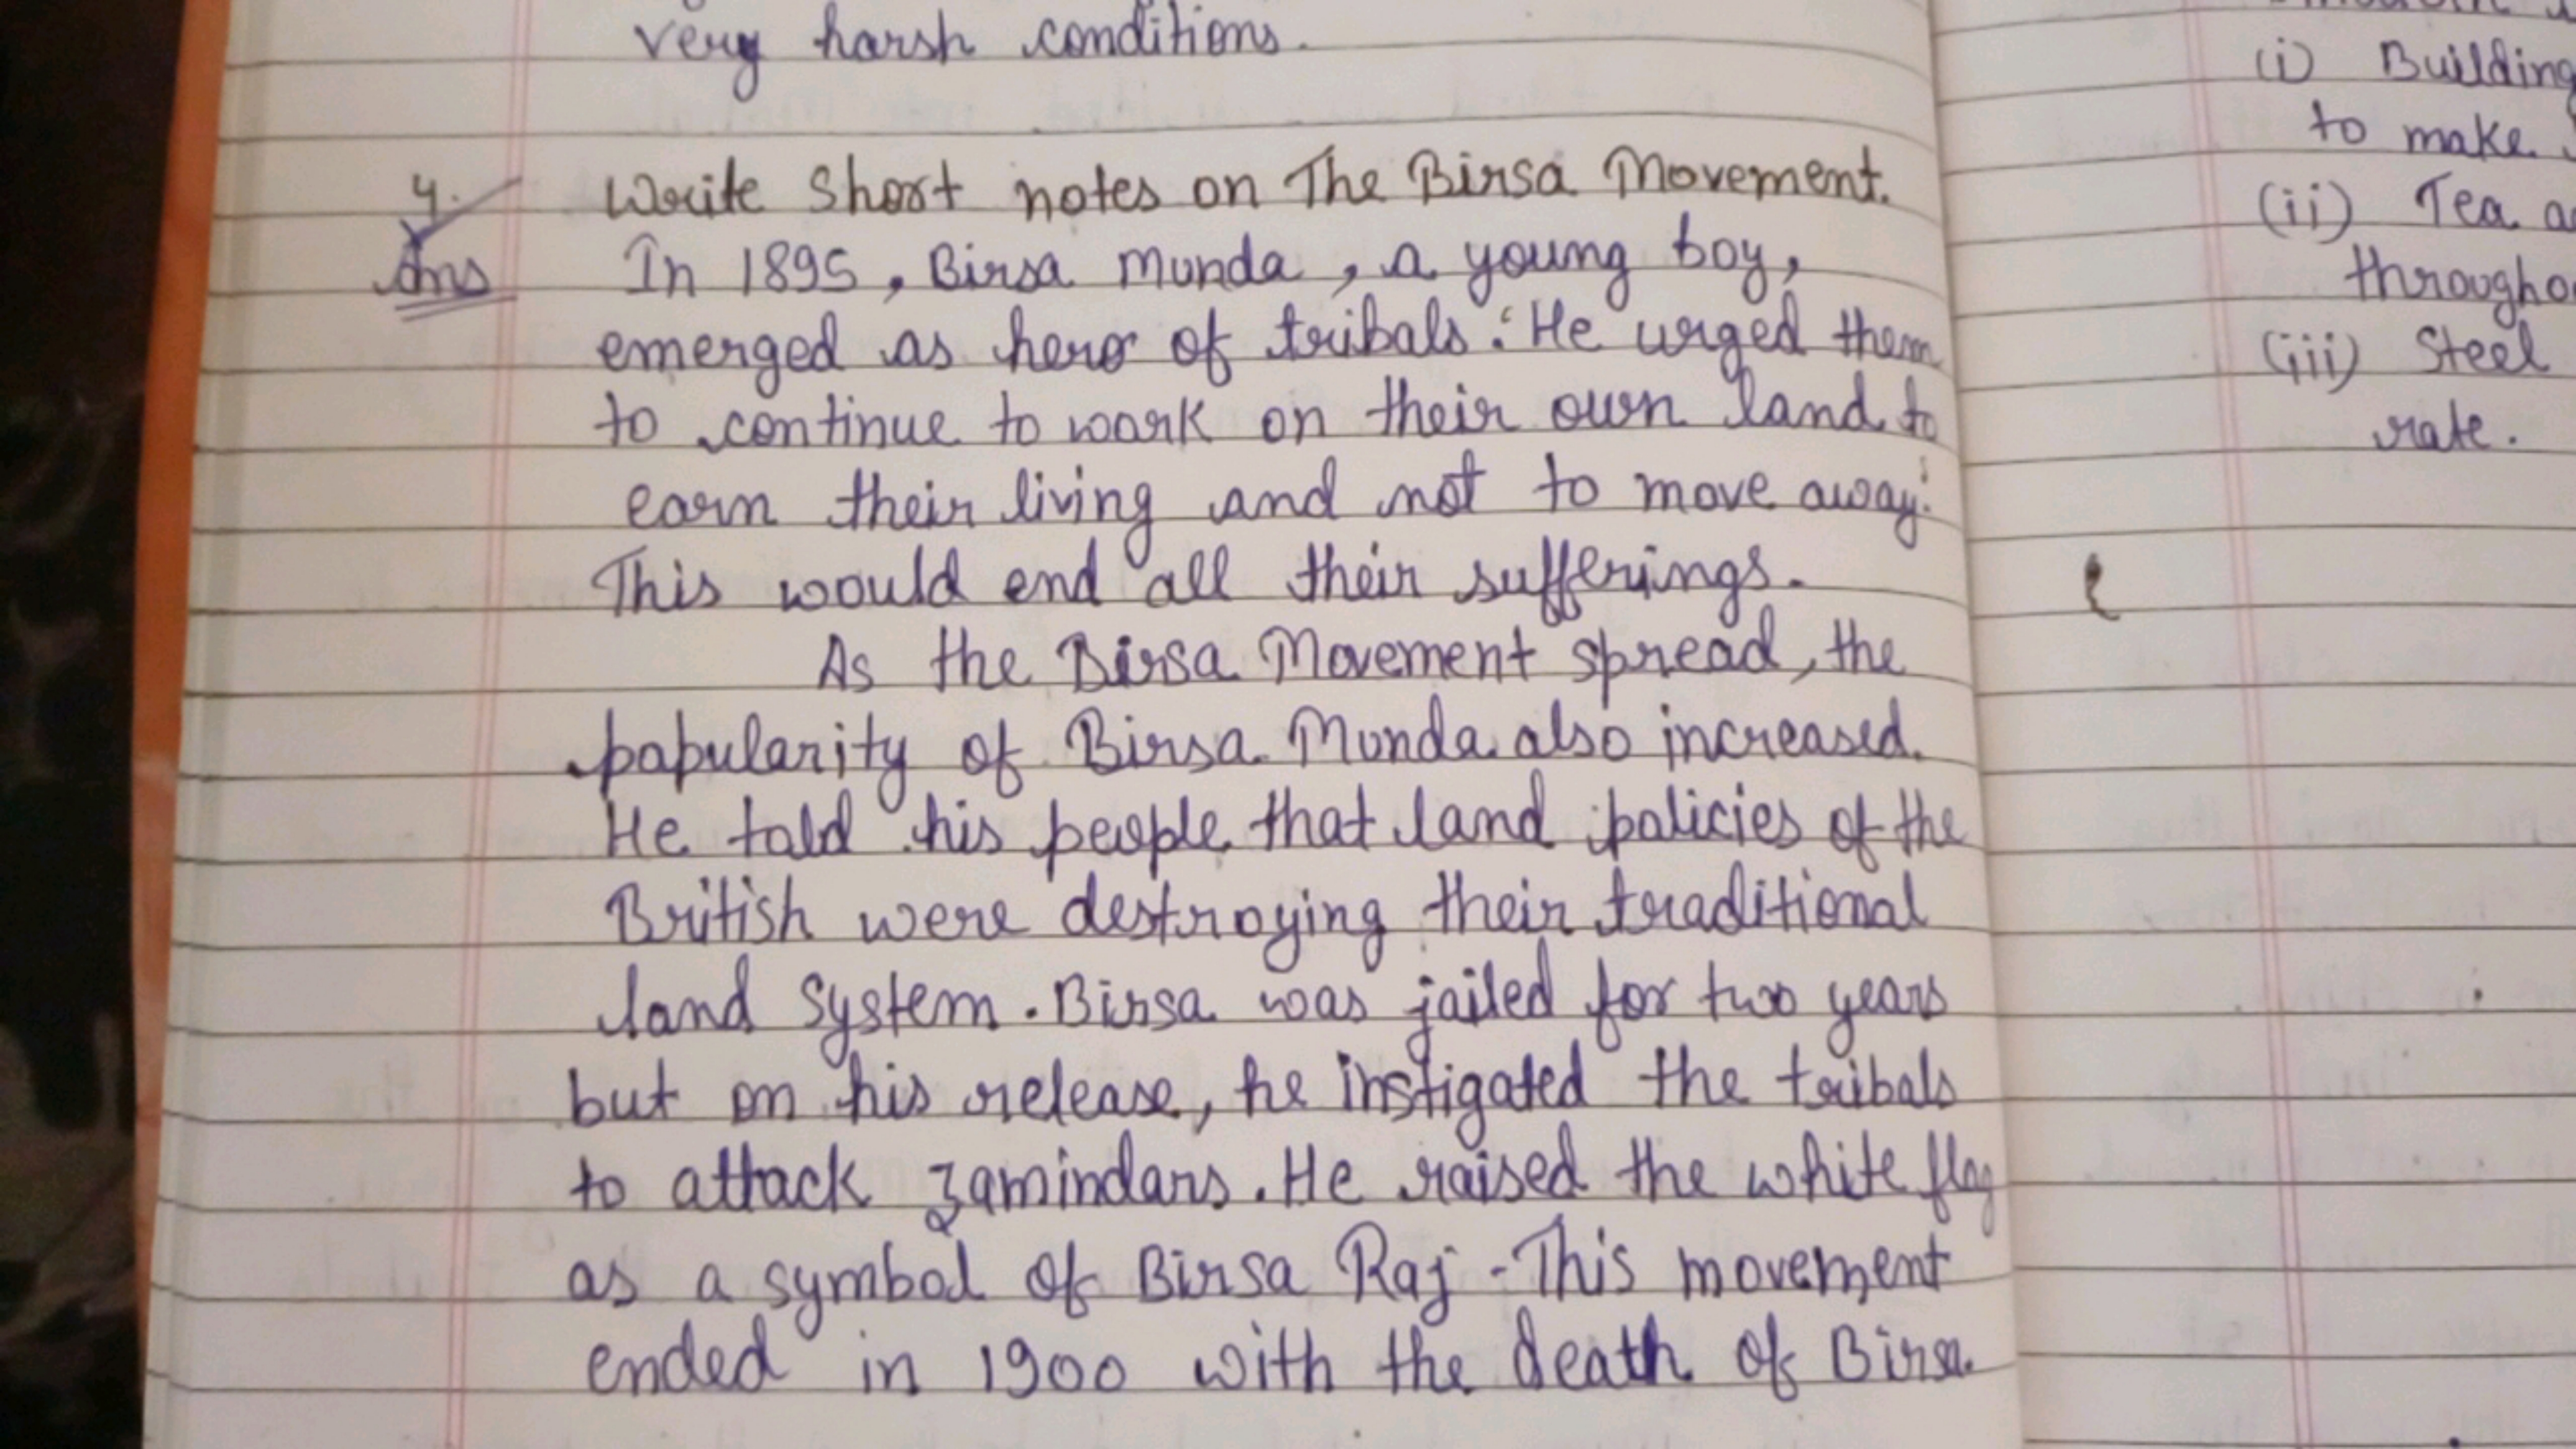 very harsh conditions.
4. Write short notes on The Birsa Movement.
Ans In 1895, Birsa Munda, a young boy,
emerged as hero of tribals. He urged them
to continue to work on their own land to
earn their living and not to move away.
This would end all their sufferings.
As the Birsa Movement spread, the
popularity of Birsa Munda also increased.
He told his people that land policies of the
British were destroying their traditional
land system. Birsa was jailed for two years
but on his release, he instigated the tribals
to attack zamindars. He raised the white flag
as a symbol of Birsa Raj - This movement
ended in 1900 with the death of Birsa.
(i) Building
to make
(ii) Tea
(iii) Steel
rate.